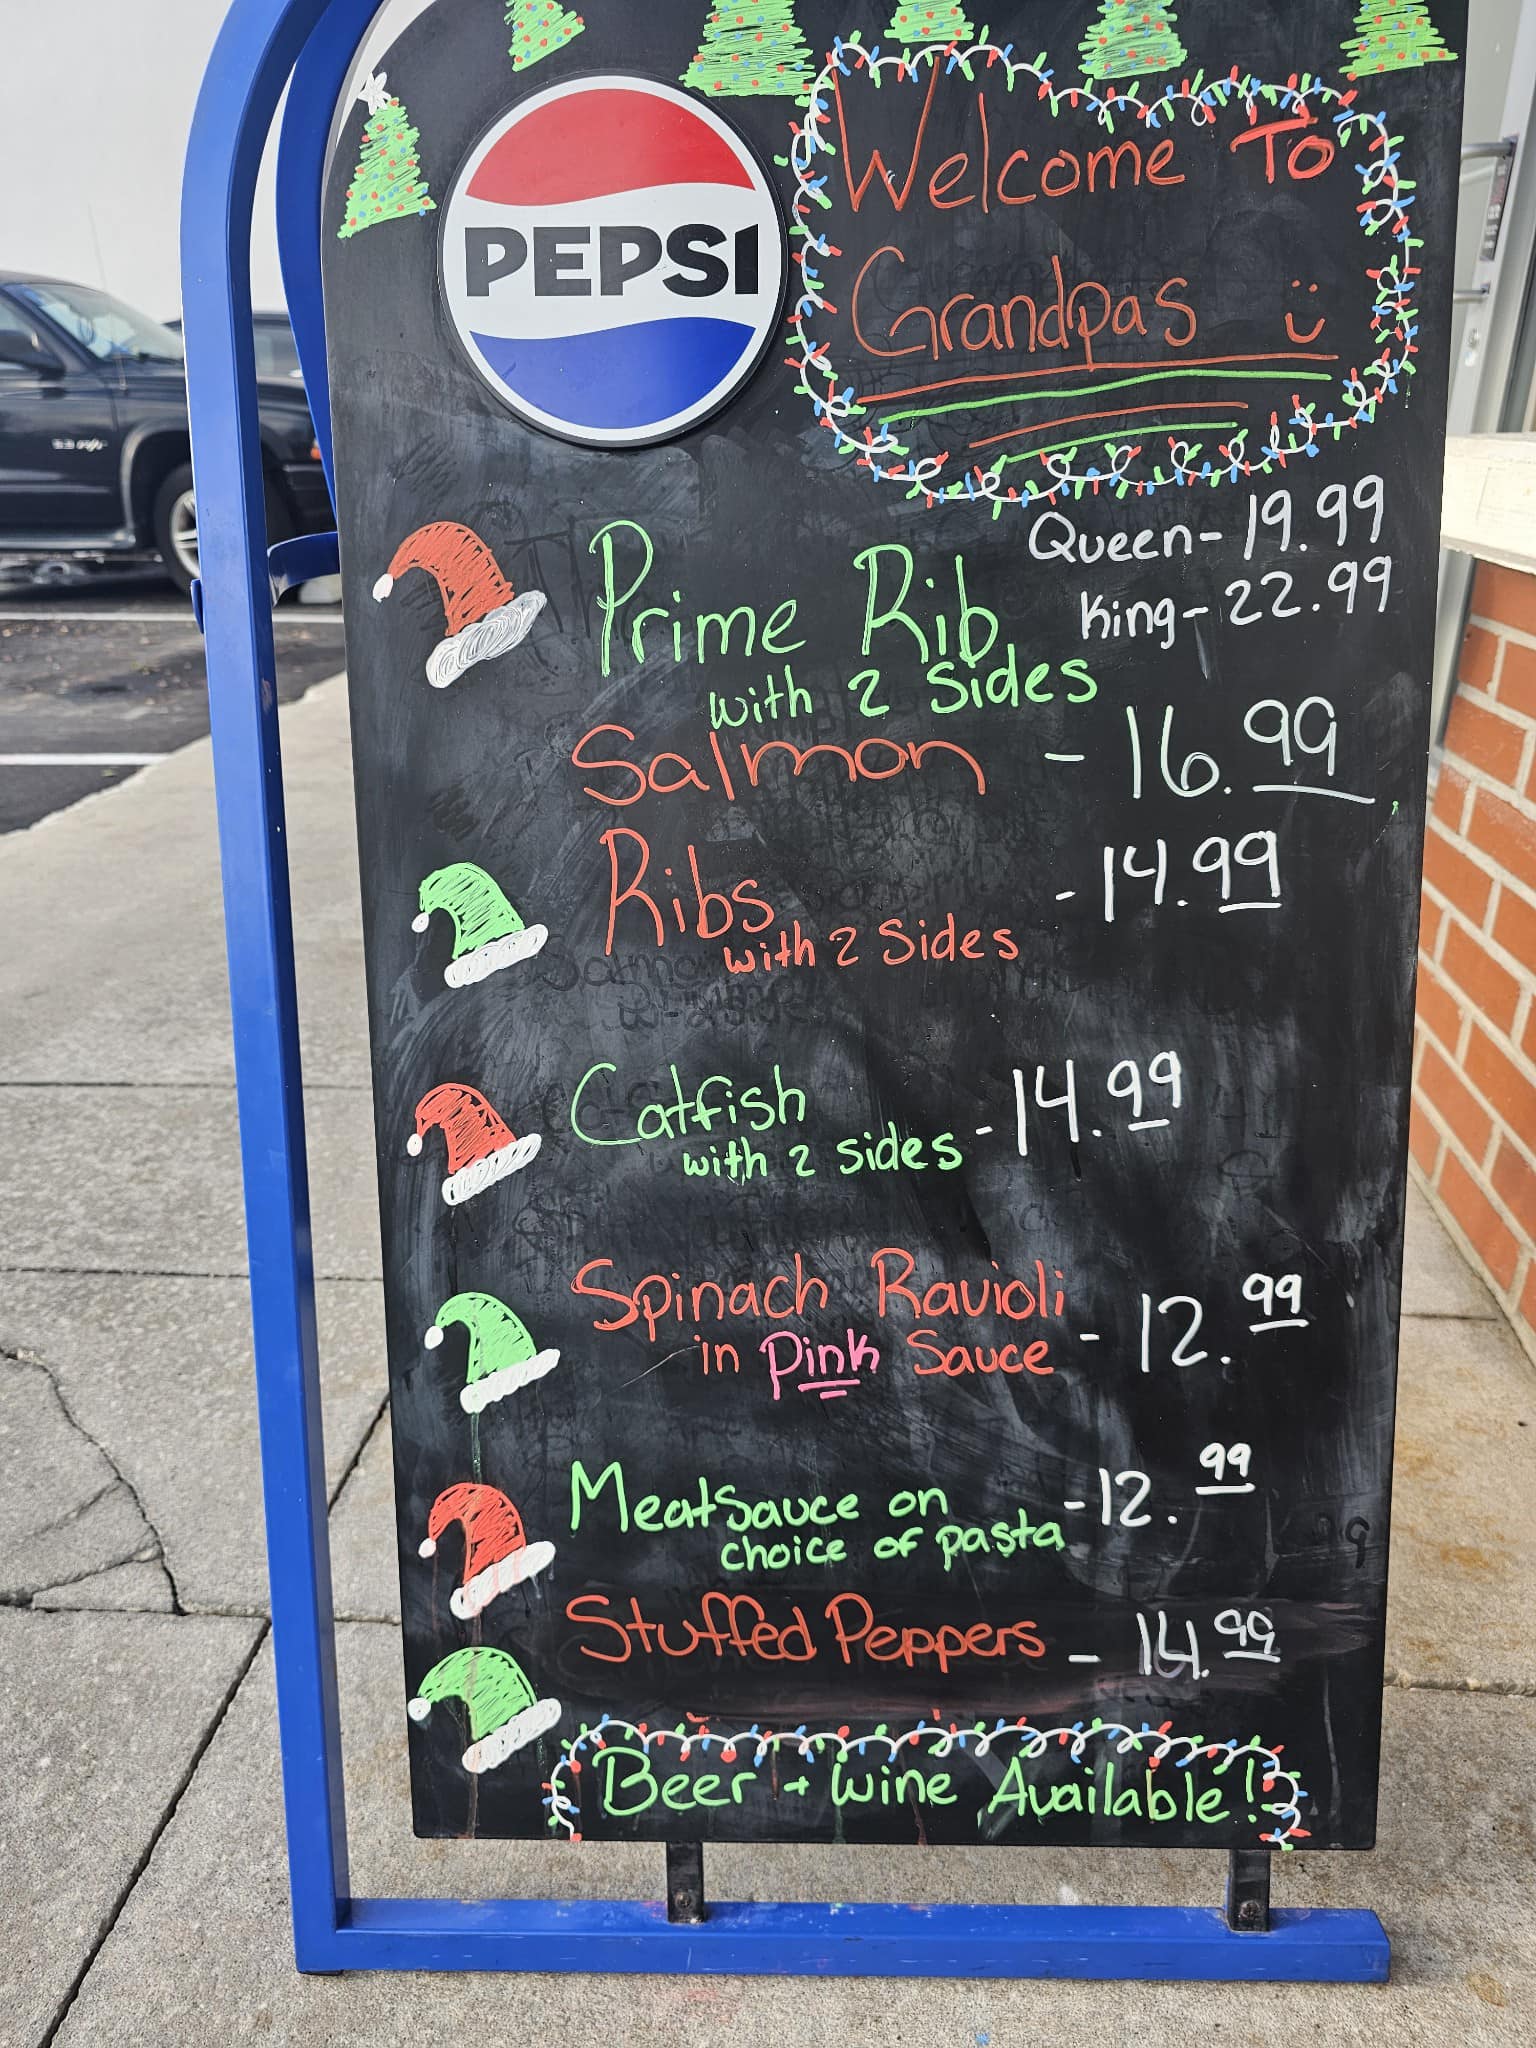 PEPSI
Welcome To
Grandpas
Queen- 19.99
King- 22.99
Prime Rib
with 2 Sides
Salmon - 16.99
Ribs - 14.99
with 2 Sides
Catfish - 14.99
with 2 sides
Spinach Ravioli - 12.99
in Pink Sauce
Meatsauce on - 12.99
choice of pasta
Stuffed Peppers - 14.99
Beer + Wine Available!